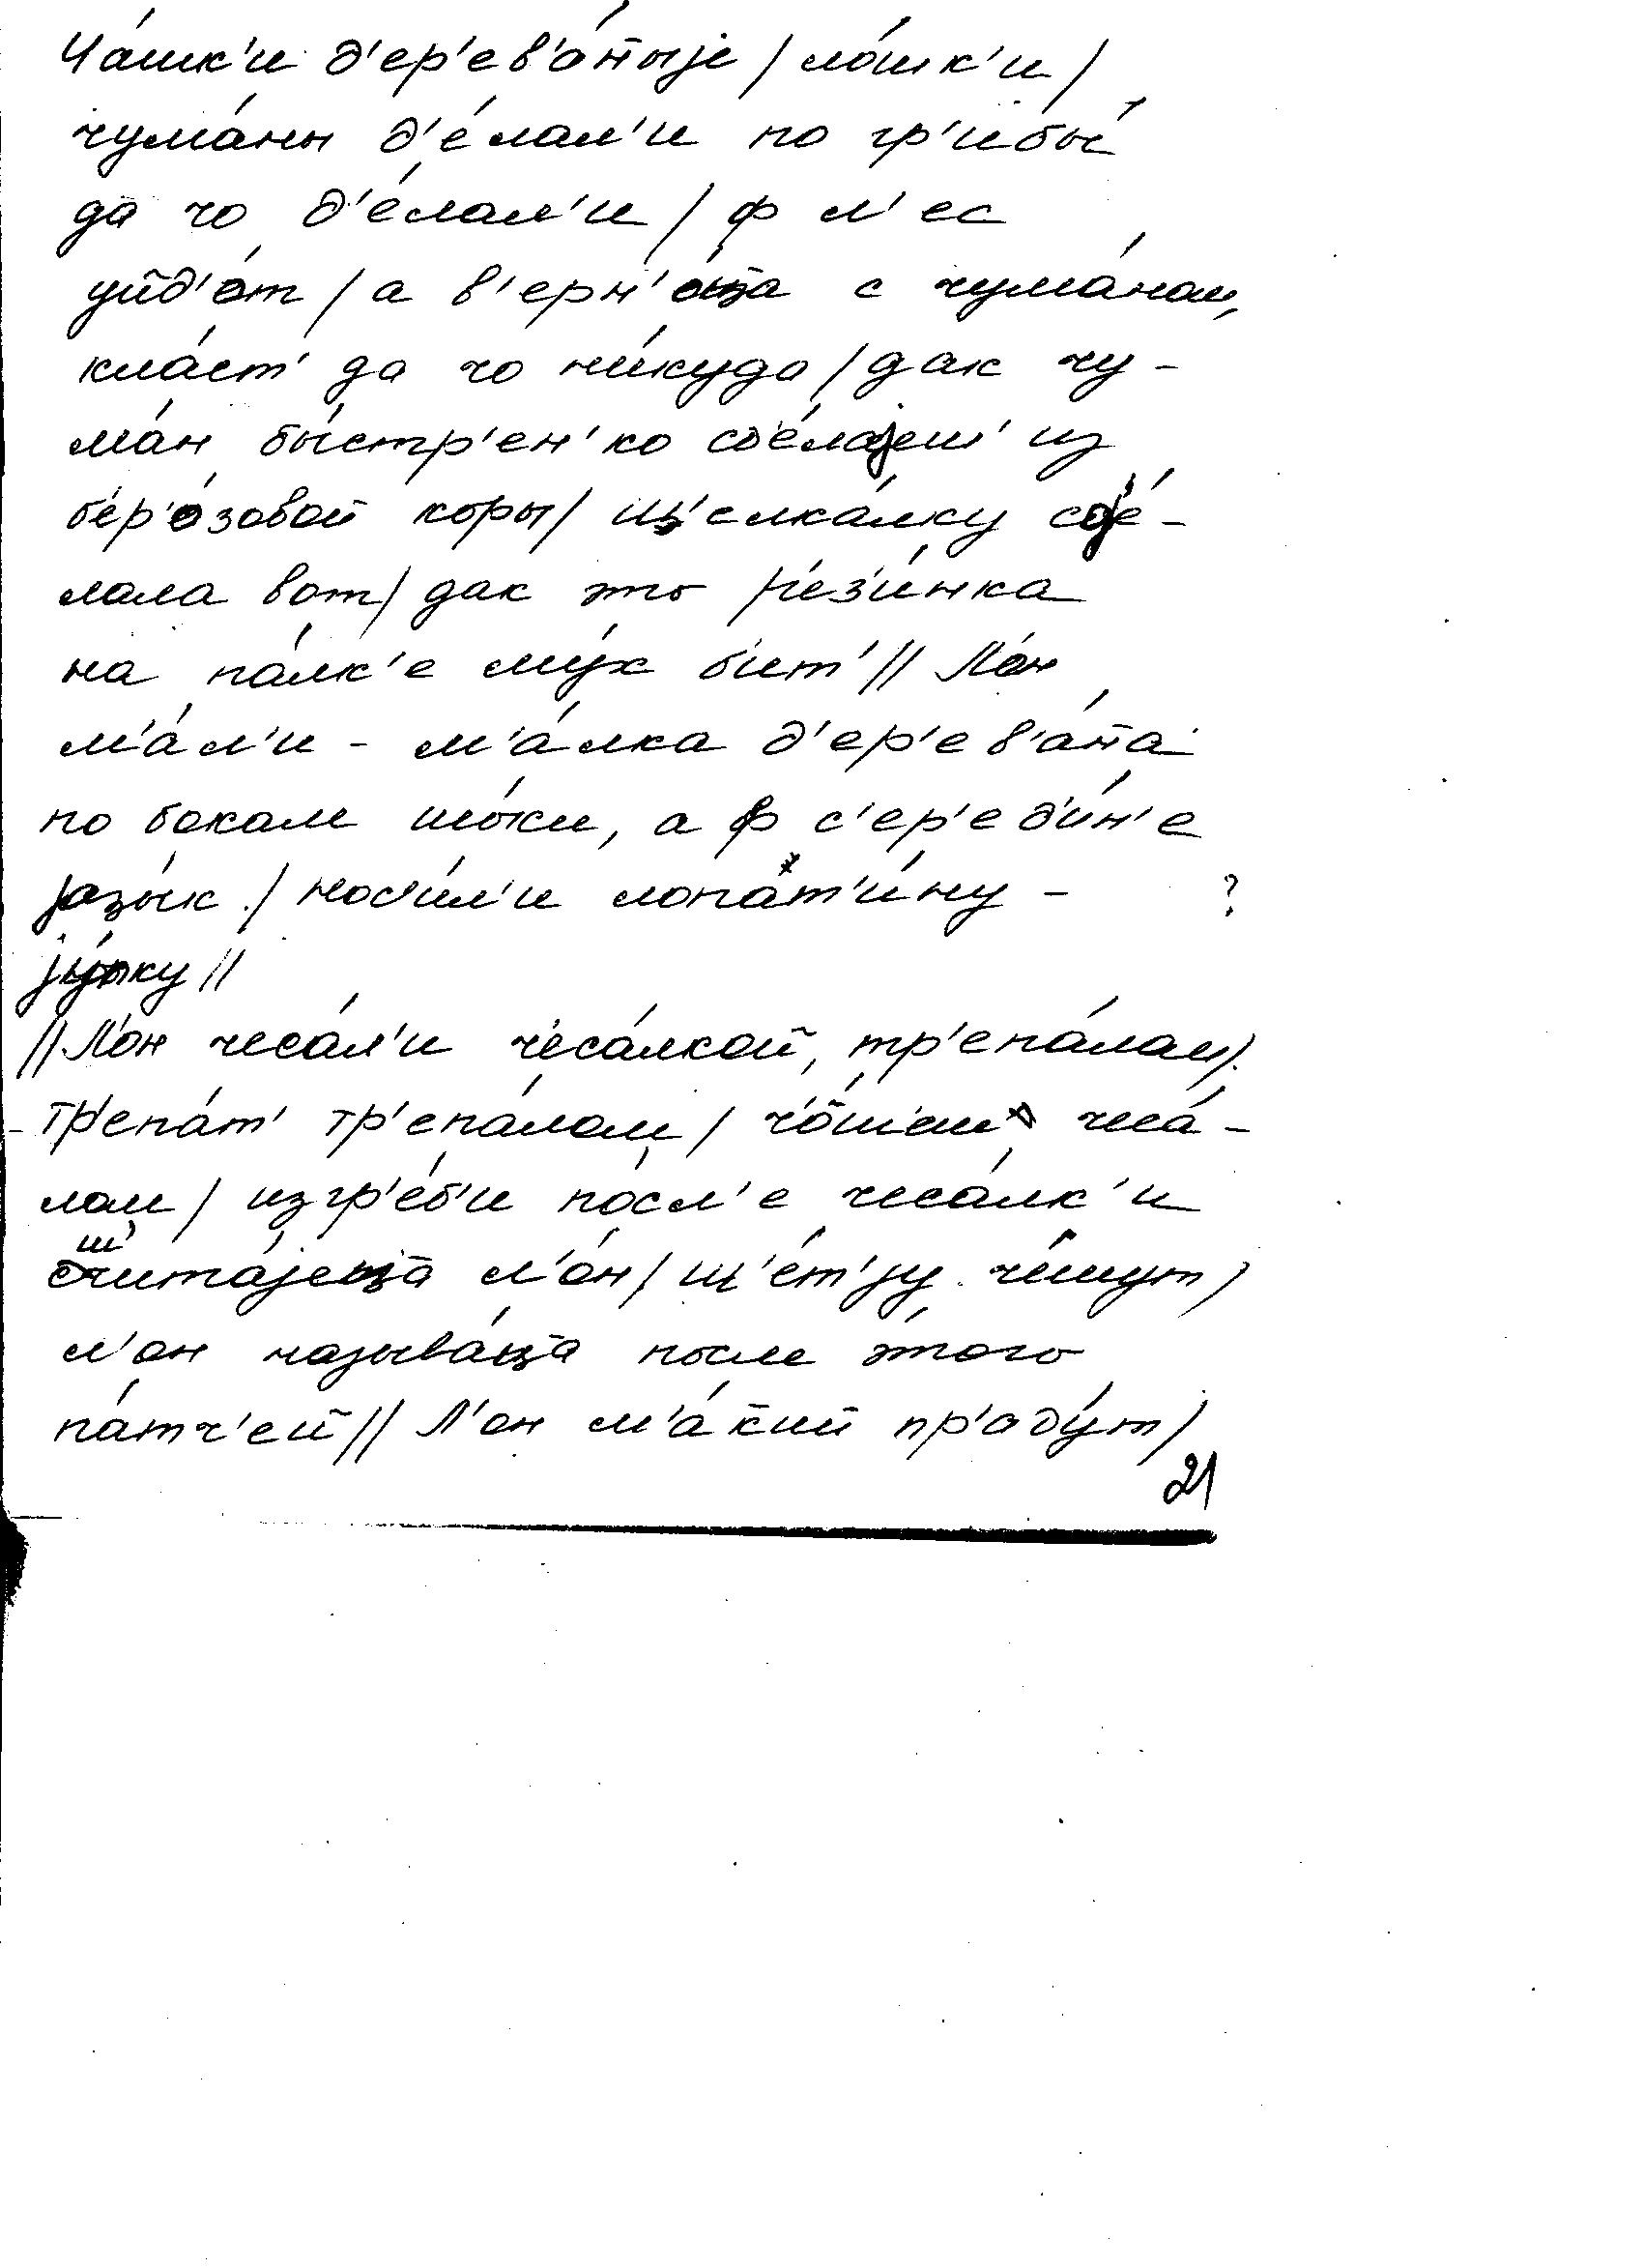 Ча́шк'и д'ер'ев'а́н̄ыjе / ло́шк'и /
чума́ны д'е́лал'и по гр'ибы́
да чо д'е́лал'и / ф л'ес
уйд'о́т / а в'ерн'о́ц̄а с чума́ном,
кла́ст' да чо не́куда / дак чу-
ма́н бы́стр'ен'ко сд'е́лаjеш' из
б'ер'о́зовой коры / щ'елка́лку сд'е́-
лала вот / дак это р'ез'и́нка
на па́лк'е му́х б'ит' // Л'о́н
м'а́л'и - м'а́лка д'ер'ев'а́н̄а
по бокам що́ки, а ф с'ер'ед'и́н'е
jазы́к / нос'и́л'и лопат'и́ну - ?
ку //
// Л'о́н чеса́л'и чеса́лкой, тр'епа́лам /
- Тр'епа́т' тр'епа́лом / чеса́-
лом / изгр'е́б'и по́сл'е чеса́лк'и
ш̄итаjец̄а л'о́н / щ'е́т'jу че́шут /
л'он называ́ц̄а после э́того
па́тч'ей // Л'он м'а́к̄ий пр'аду́т /
21